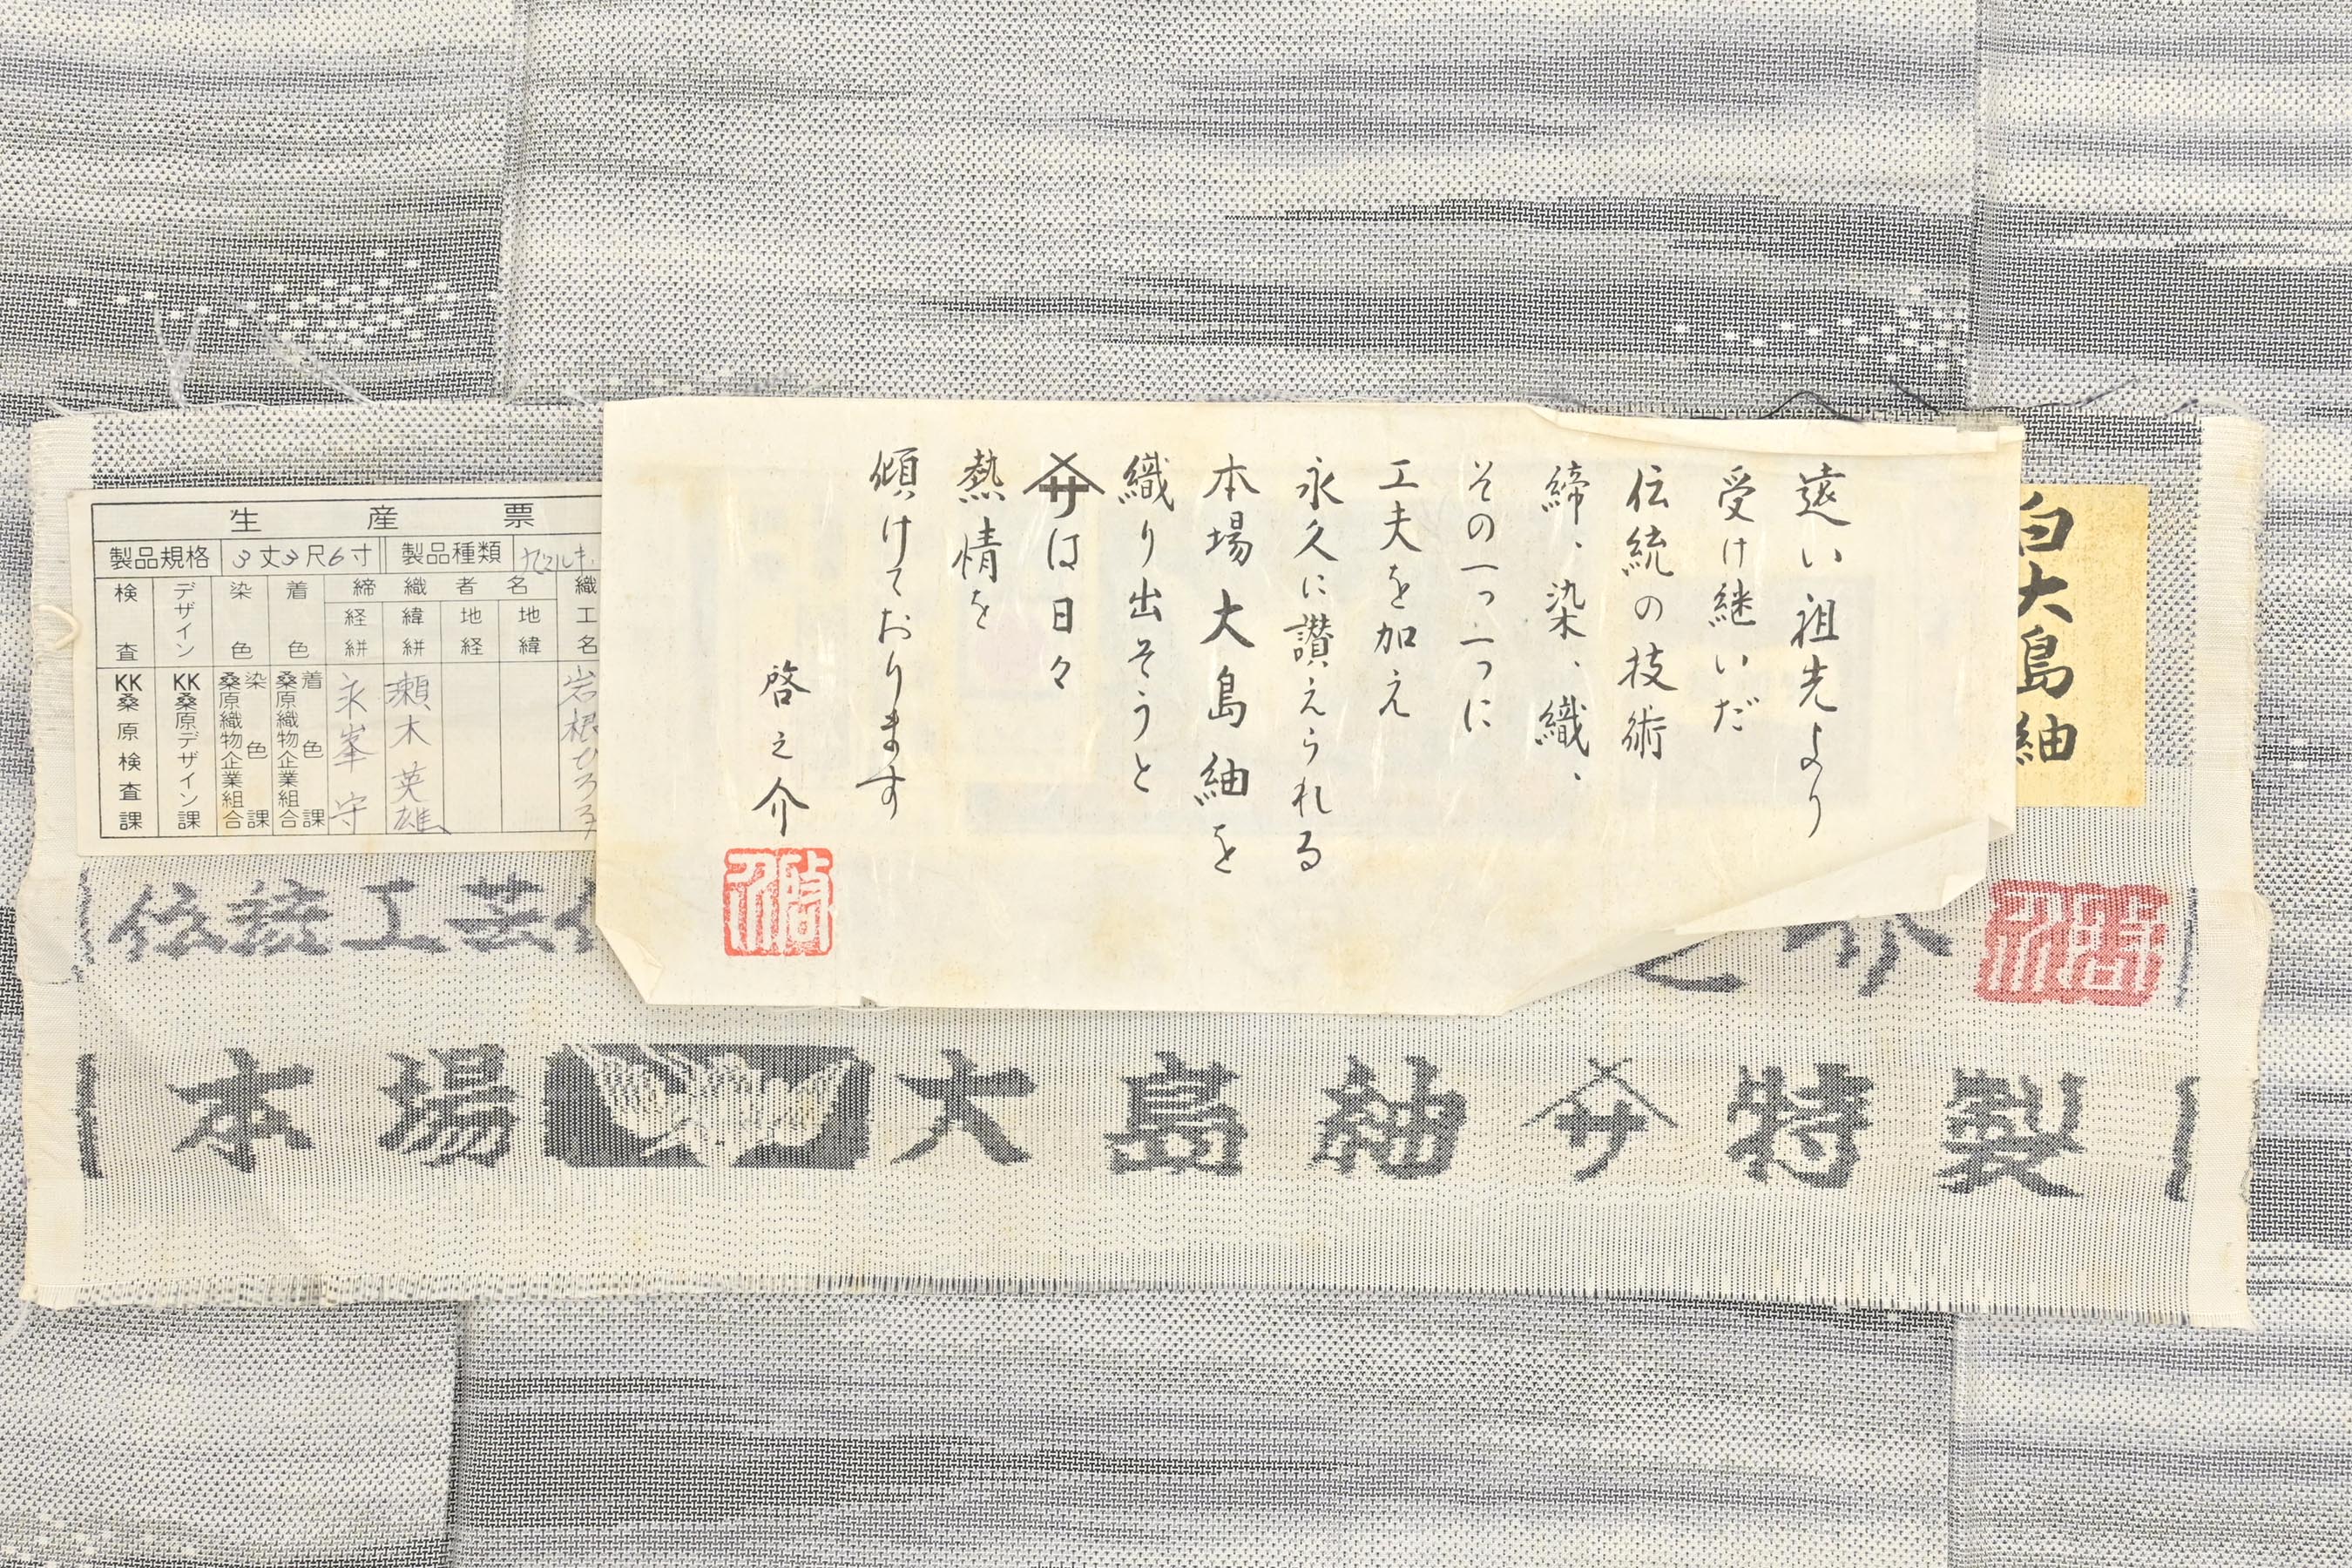 遠い祖先より
受け継いだ
伝統の技術
締、染、織、
その一つ一つに
工夫を加え
永久に讃えられる
本場大島紬を
織り出そうと
サは日々
熱情を
傾けております
啓之介
白大島紬
生産票
製品規格 3丈3尺6寸 製品種類
検査 デザイン 染色 着色 締織者名 織工名
経絣 緯絣 地経 地緯
KK桑原検査課
KKデザイン課
桑原織物企業組合 染色課
桑原織物企業組合 着色課
永峯守
瀬木英雄
岩根ひろ子
伝統工芸
之介
本場大島紬サ特製